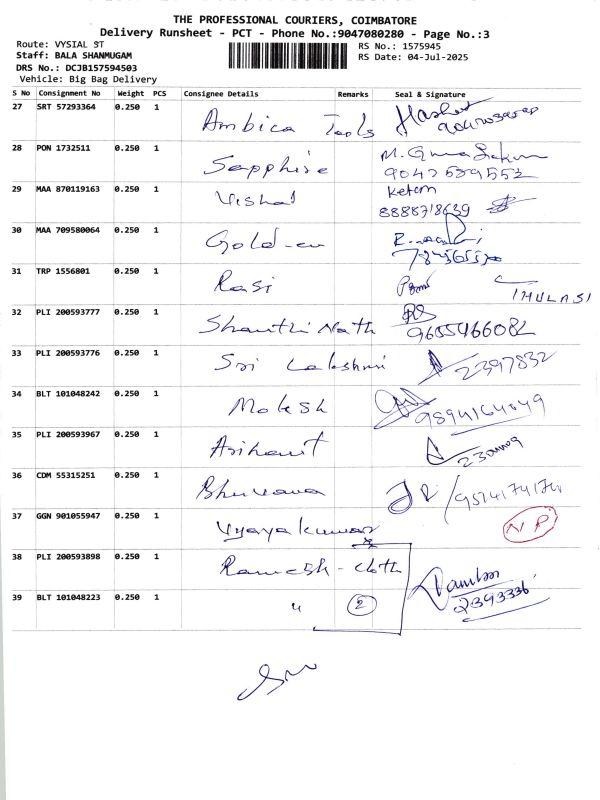 THE PROFESSIONAL COURIERS, COIMBATORE
Delivery Runsheet - PCT - Phone No.:9047080280 - Page No.:3
Route: VYSIAL ST
RS No.: 1575945
Staff: BALA SHANMUGAM
RS Date: 04-Jul-2025
DRS No.: DCJB157594503
Vehicle: Big Bag Delivery
S No Consignment No Weight PCS Consignee Details Remarks Seal & Signature
27 SRT 57293364 0.250 1 Ambica Tools
28 PON 1732511 0.250 1 Sapphire
29 MAA 870119163 0.250 1 Vishal Ketan
8888718639
30 MAA 709580064 0.250 1
31 TRP 1556801 0.250 1 Rasi THULASI
32 PLI 200593777 0.250 1 Shanthi Nath 9655466082
33 PLI 200593776 0.250 1 Sri Lakshmi 2397832
34 BLT 101048242 0.250 1 Mokesh
35 PLI 200593967 0.250 1 Arihant
36 CDM 55315251 0.250 1 Bhuvana
37 GGN 901055947 0.250 1 Vijayakumar NP
38 PLI 200593898 0.250 1 Ramesh - Cloth
39 BLT 101048223 0.250 1 " 2 2393336